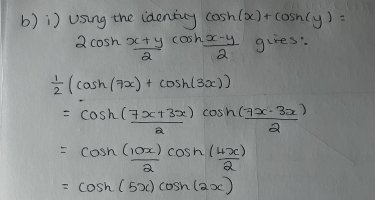 b) i) Using the identity cosh(x) + cosh(y) =
2cosh x+y/2 cosh x-y/2 gives:
1/2 (cosh(7x) + cosh(3x))
= cosh (7x+3x)/2 cosh (7x-3x)/2
= cosh (10x)/2 cosh (4x)/2
= cosh (5x) cosh (2x)